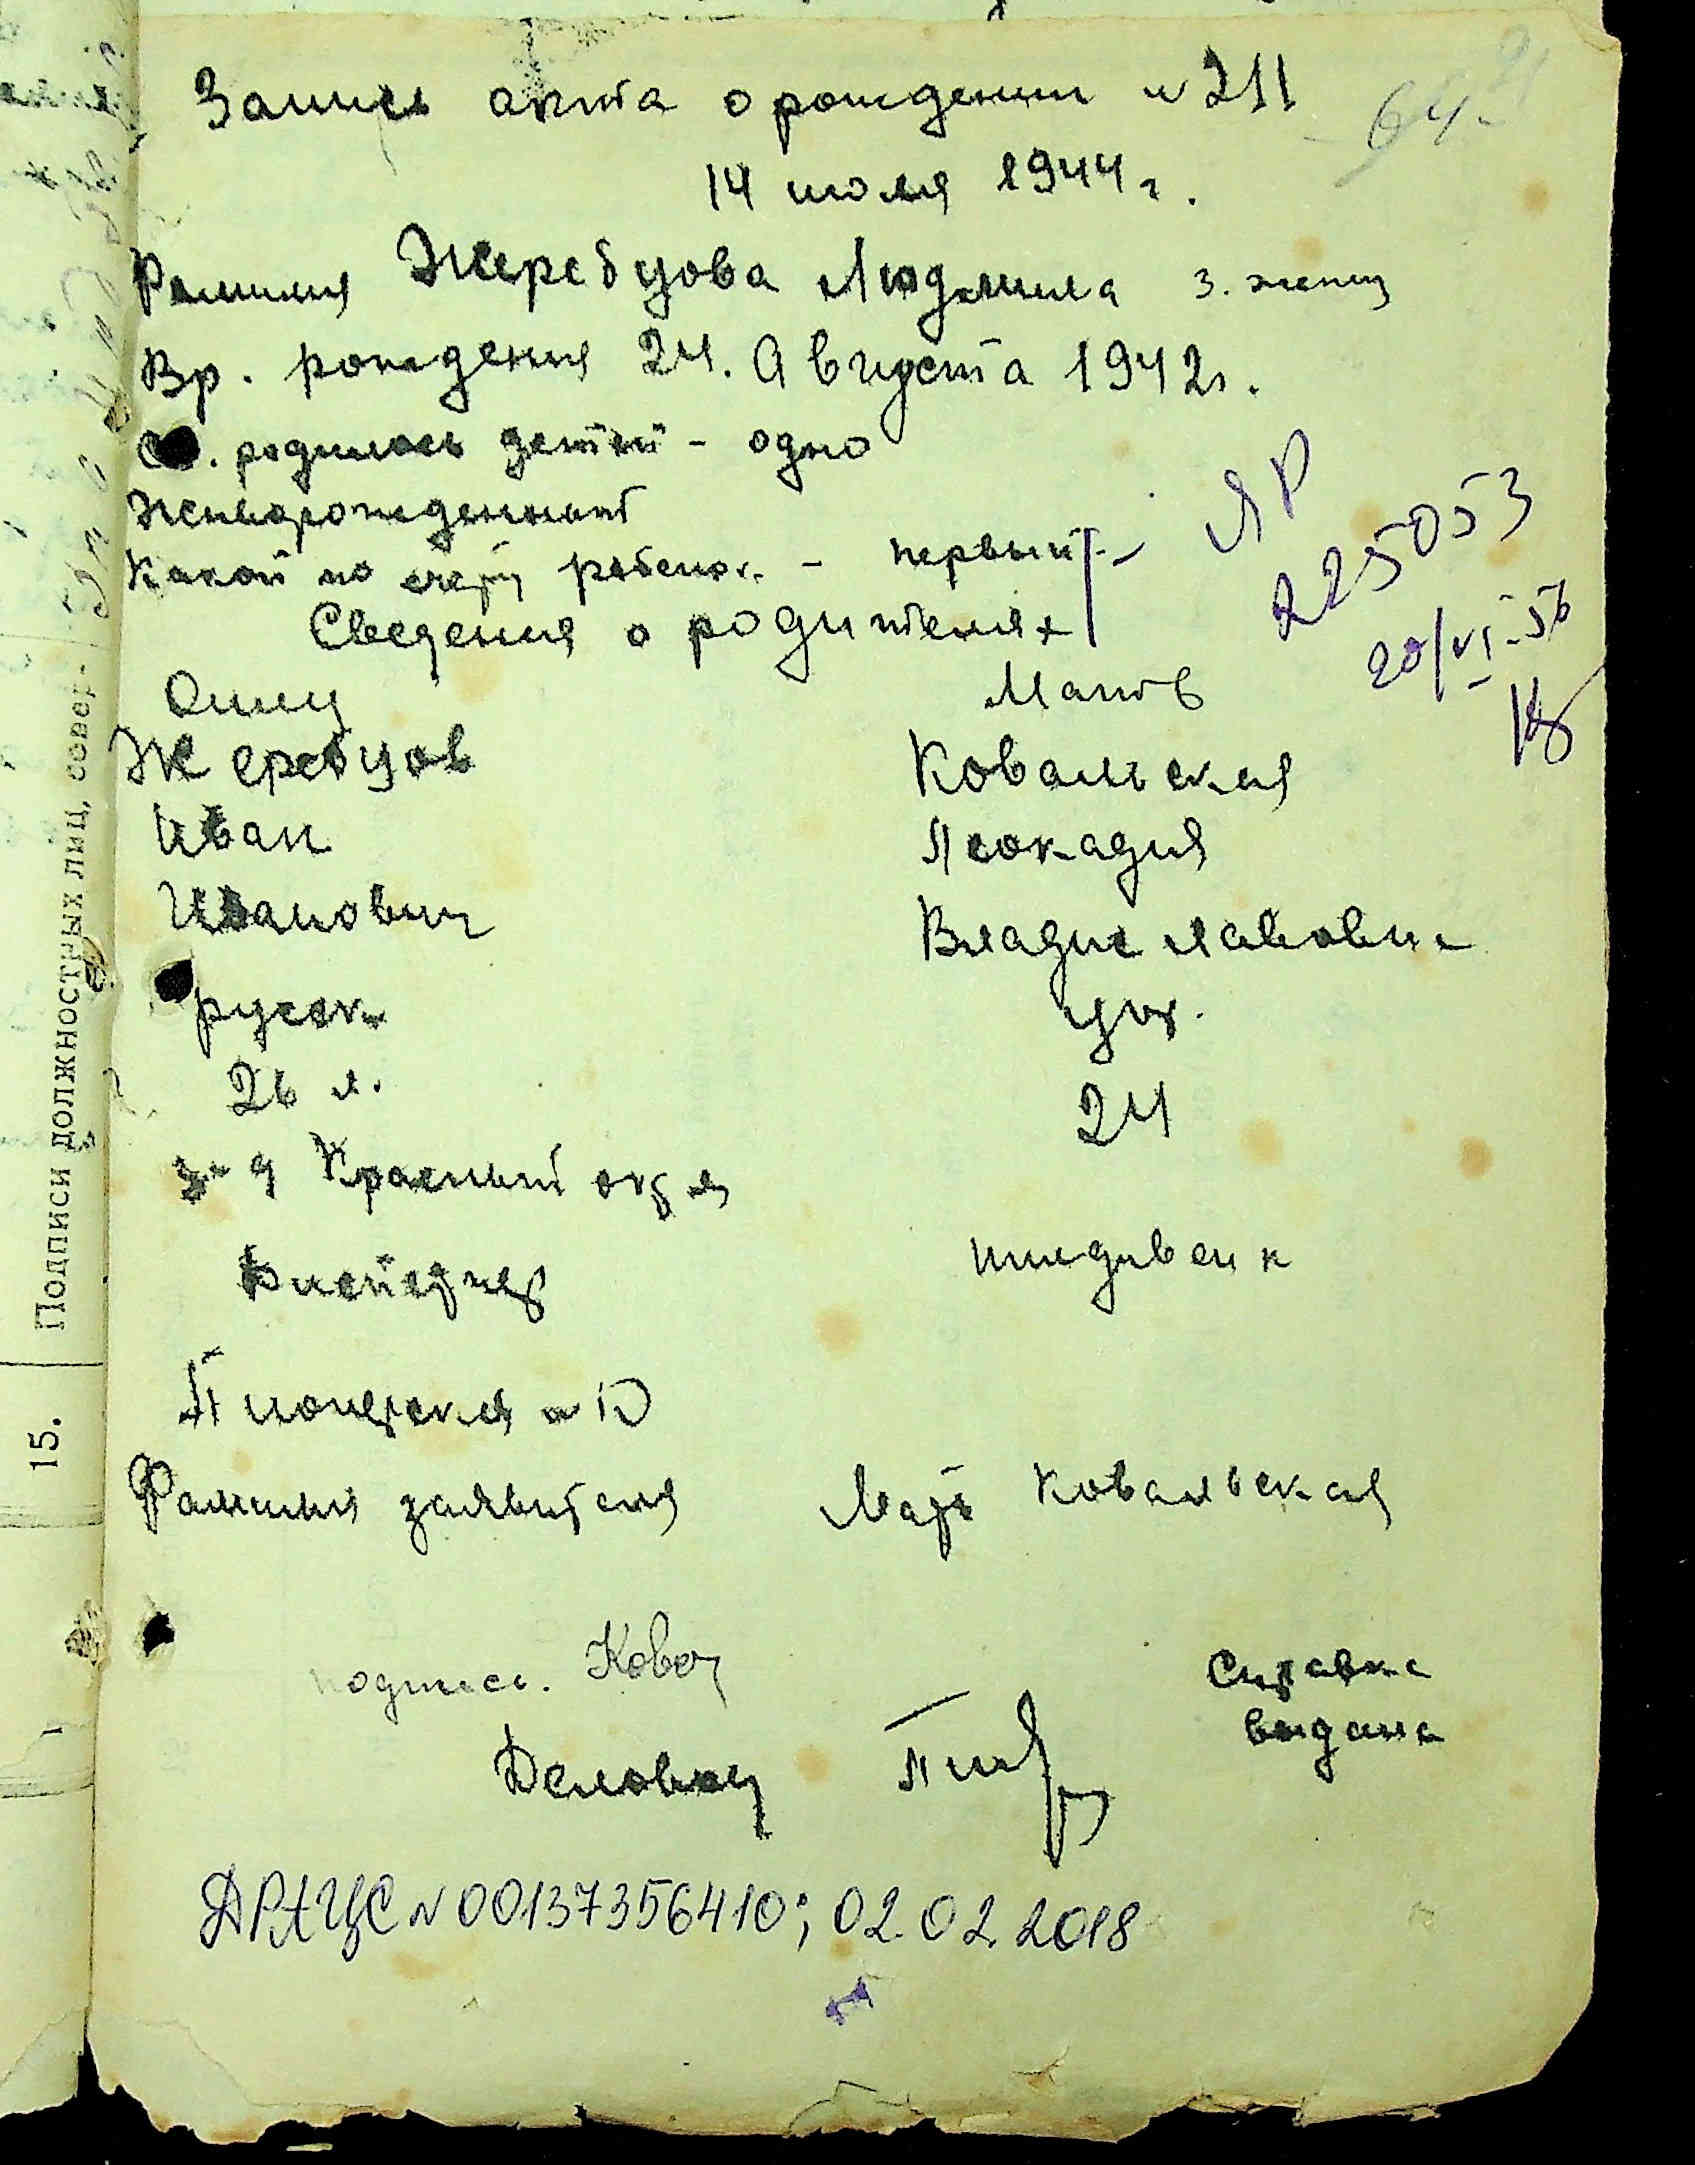 Запись акта о рождении № 211
64
14 июля 1944 г.
Фамилия Жеребцова Людмила 3.
Вр. рождения 24. Августа 1942 г.
родилось детей - одно
Живорожденный
Какой по счету ребенок - первый
ЯР
225053
20/VI-56
Сведения о родителях
Отец Мать
Жеребцов Ковальская
Иван Леокадия
Иванович Владиславовн
русск укр.
26 л. 24
з-д Красный
диспетчер иждивен
Пионерская № 10
Фамилия заявителя Мать Ковальская
подпись. Ковал
Справка
выдана
Деловод
ДРАЦС № 00137356410; 02.02.2018
Подписи должностных лиц, совер-
15.